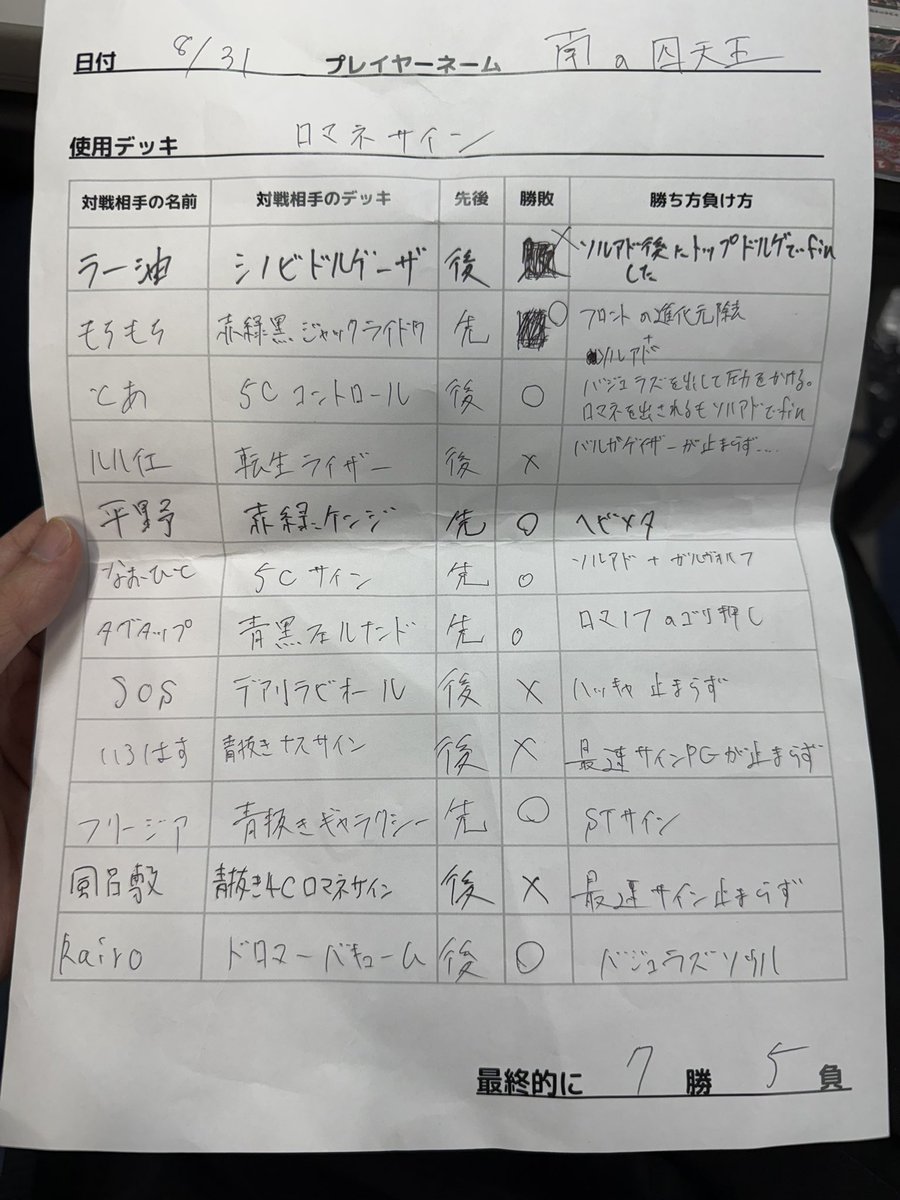 日付 8/31 プレイヤーネーム 南の四天王
使用デッキ ロマネサイン
対戦相手の名前 対戦相手のデッキ 先後 勝敗 勝ち方負け方
ラー油 シノビドルゲーザ 後 × ソルアド後にトップドルゲでfin
した
もちもち 赤緑黒ジャックライドウ 先 ○ フロントの進化元除去
+
ソルアド
とあ 5Cコントロール 後 ○ バジュラズを出して圧力をかける。
ロマネを出されるもソルアドでfin
ルル江 転生ライザー 後 × バルガゲイザーが止まらず....
平野 赤緑ケンジ 先 ○ ヘビメタ
なおーひと 5Cサイン 先 ○ ソルアド + ガルヴォルフ
タグタップ 青黒フェルナンド 先 ○ ロマノフのゴリ押し
SOS デアリラビオール 後 × ハッキャ止まらず
いろはす 青抜きナスサイン 後 × 最速サインPGが止まらず
フリージア 青抜きギャラクシー 先 ○ STサイン
風呂敷 青抜き4Cロマネサイン 後 × 最速サイン止まらず
kairo ドロマーバキューム 後 ○ バジュラズソウル
最終的に 7 勝 5 負